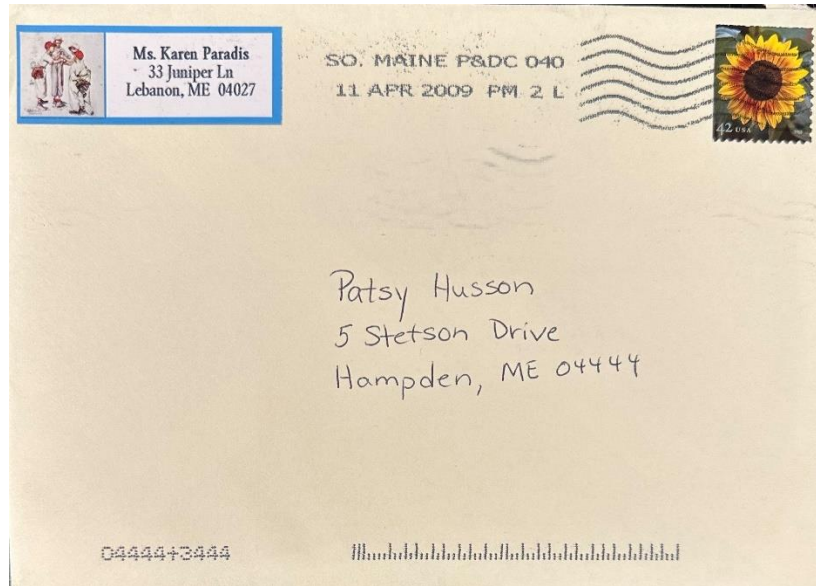 Ms. Karen Paradis
33 Juniper Ln
Lebanon, ME 04027
SO. MAINE P&DC 040
11 APR 2009 PM 2 L
42 USA
Patsy Husson
5 Stetson Drive
Hampden, ME 04444
04444+3444